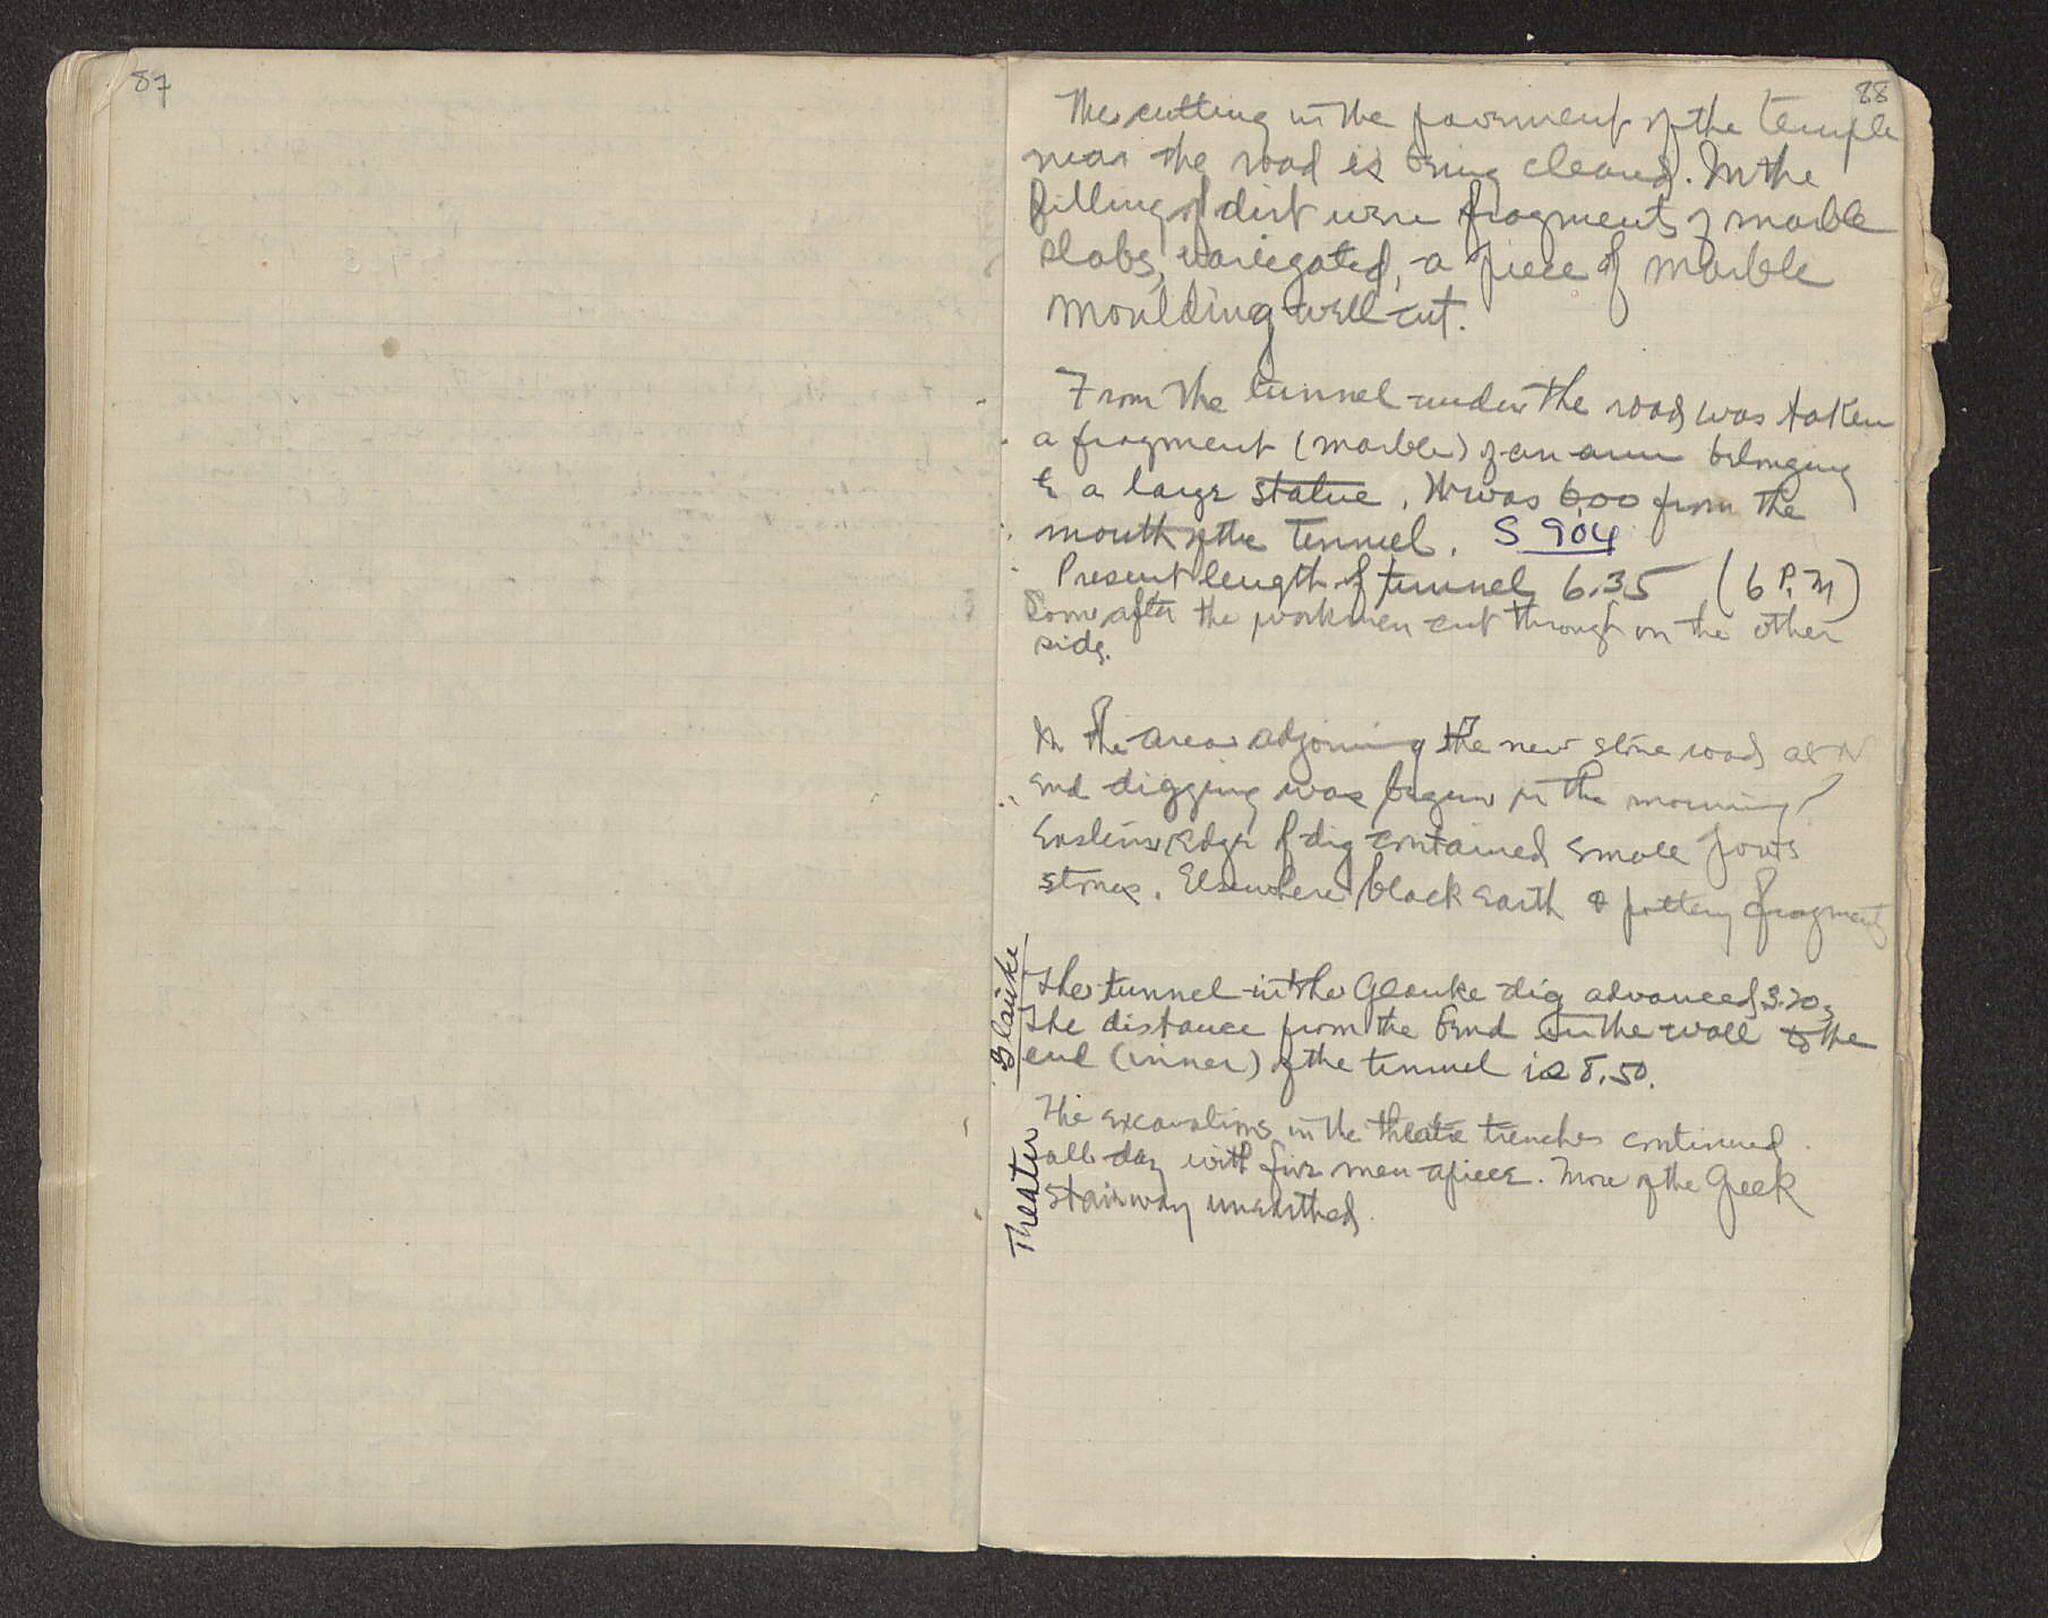 87
88
The cutting in the pavement of the temple
near the road is being cleared. In the
filling of dirt were fragments of marble
slabs, variegated, a piece of marble
moulding well cut.
From the tunnel under the road was taken
a fragment (marble) of an arm belonging
to a large statue. It was 6.00 from the
mouth of the tunnel. S 904
Present length of tunnel 6.35 (6 P.M)
Soon after the workmen cut through on the other
side.
In the area adjoining the new stone road at N
end digging was begun in the morning
Eastern edge of dig contained small poros
stones. Elsewhere black earth & pottery fragments
Glauke
The tunnel in the Glauke dig advanced 3.20
The distance from the bend in the wall to the
end (inner) of the tunnel is 8.50.
Theater
The excavations in the theatre trenches continued
all day with five men apiece. More of the Greek
stairway unearthed.